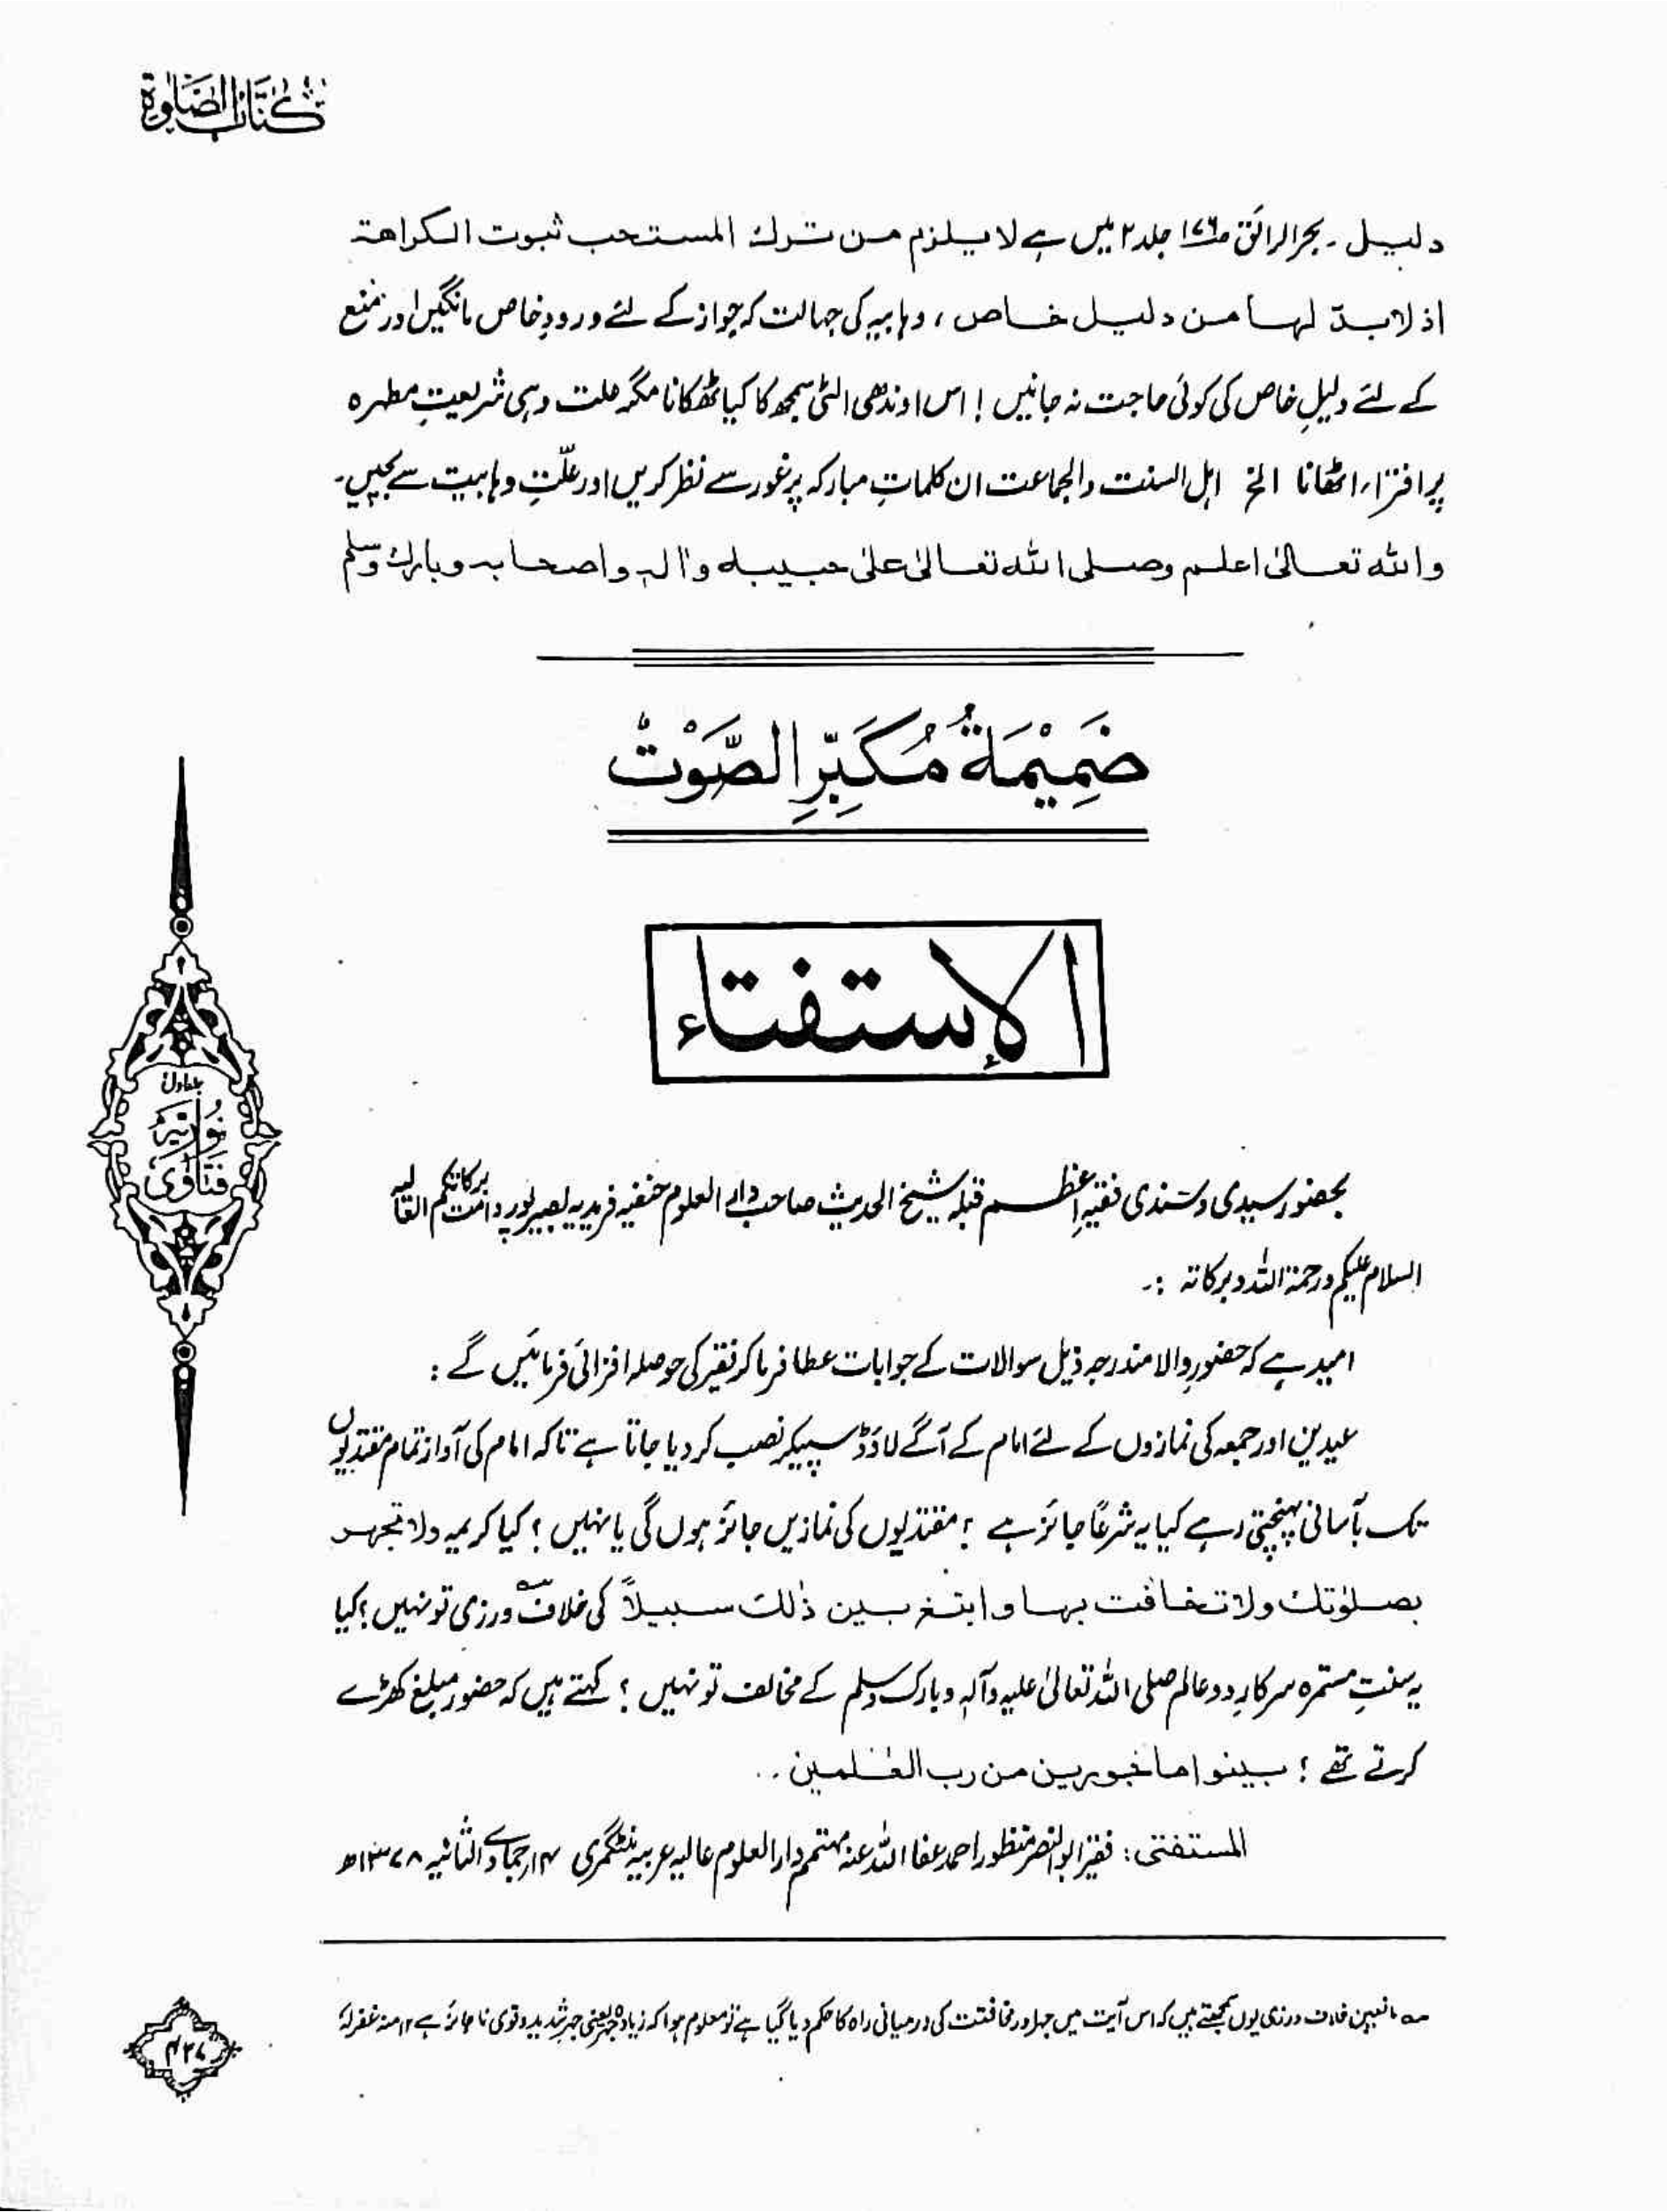 كتاب الصلوة
دلیل ۔ بحر الرائق ص۱۷۶ جلد ۲ میں ہے لا یلزم من ترك المستحب ثبوت الکراهة
اذ لا بدّ لها من دلیل خاص، وہابیہ کی جہالت کہ جواز کے لئے ورودِ خاص مانگیں اور منع
کے لئے دلیلِ خاص کی کوئی حاجت نہ جانیں ! اس اوندھی الٹی سمجھ کا کیا ٹھکانا مگر ملت وہی شریعتِ مطہرہ
پر افتراء اٹھانا الخ اہل السنت والجماعت ان کلماتِ مبارکہ پر غور سے نظر کریں اور علّتِ وہابیت سے بچیں۔
والله تعالیٰ اعلم وصلی الله تعالیٰ علیٰ حبیبه واٰله واصحابه وبارك وسلم
ضَمِيْمَةُ مُكَبِّرِ الصَّوْتْ
الإستفتاء
بحضور سیدی و سندی فقیہِ اعظم قبلہ شیخ الحدیث صاحب دار العلوم حنفیہ فریدیہ بصیر پور دامت برکاتکم العالیہ
السلام علیکم ورحمۃ اللہ وبرکاتہ :۔
امید ہے کہ حضورِ والا مندرجہ ذیل سوالات کے جوابات عطا فرما کر فقیر کی حوصلہ افزائی فرمائیں گے :
عیدین اور جمعہ کی نمازوں کے لئے امام کے آگے لاؤڈ سپیکر نصب کر دیا جاتا ہے تاکہ امام کی آواز تمام مقتدیوں
تک بآسانی پہنچتی رہے کیا یہ شرعًا جائز ہے ؟ مقتدیوں کی نمازیں جائز ہوں گی یا نہیں ؟ کیا کریمہ ولا تجهر
بصلوٰتك ولا تخافت بها وابتغ بین ذٰلك سبیلاً کی خلاف ورزی تو نہیں ؟ کیا
یہ سنتِ مستمرہ سرکارِ دو عالم صلی اللہ تعالیٰ علیہ وآلہٖ وبارک وسلم کے مخالف تو نہیں ؟ کہتے ہیں کہ حضور مبلغ کھڑے
کرتے تھے ؟ بینوا ماجورین من رب العٰلمین ..
المستفتی : فقیر ابو النصر منظور احمد عفا اللہ عنہ مہتمم دار العلوم عالیہ عربیہ منٹگمری ۱۴؍ جمادے الثانیہ ۱۳۷۸ھ
جلد اول
نوریہ
فتاوٰی
عہ مانعین خلاف ورزی یوں سمجھتے ہیں کہ اس آیت میں جہر اور مخافتت کی درمیانی راہ کا حکم دیا گیا ہے تو معلوم ہوا کہ زیادہ جہر یعنی جہر شدید و قوی نا جائز ہے ۱۲ منہ غفرلہٗ
۴۲۷